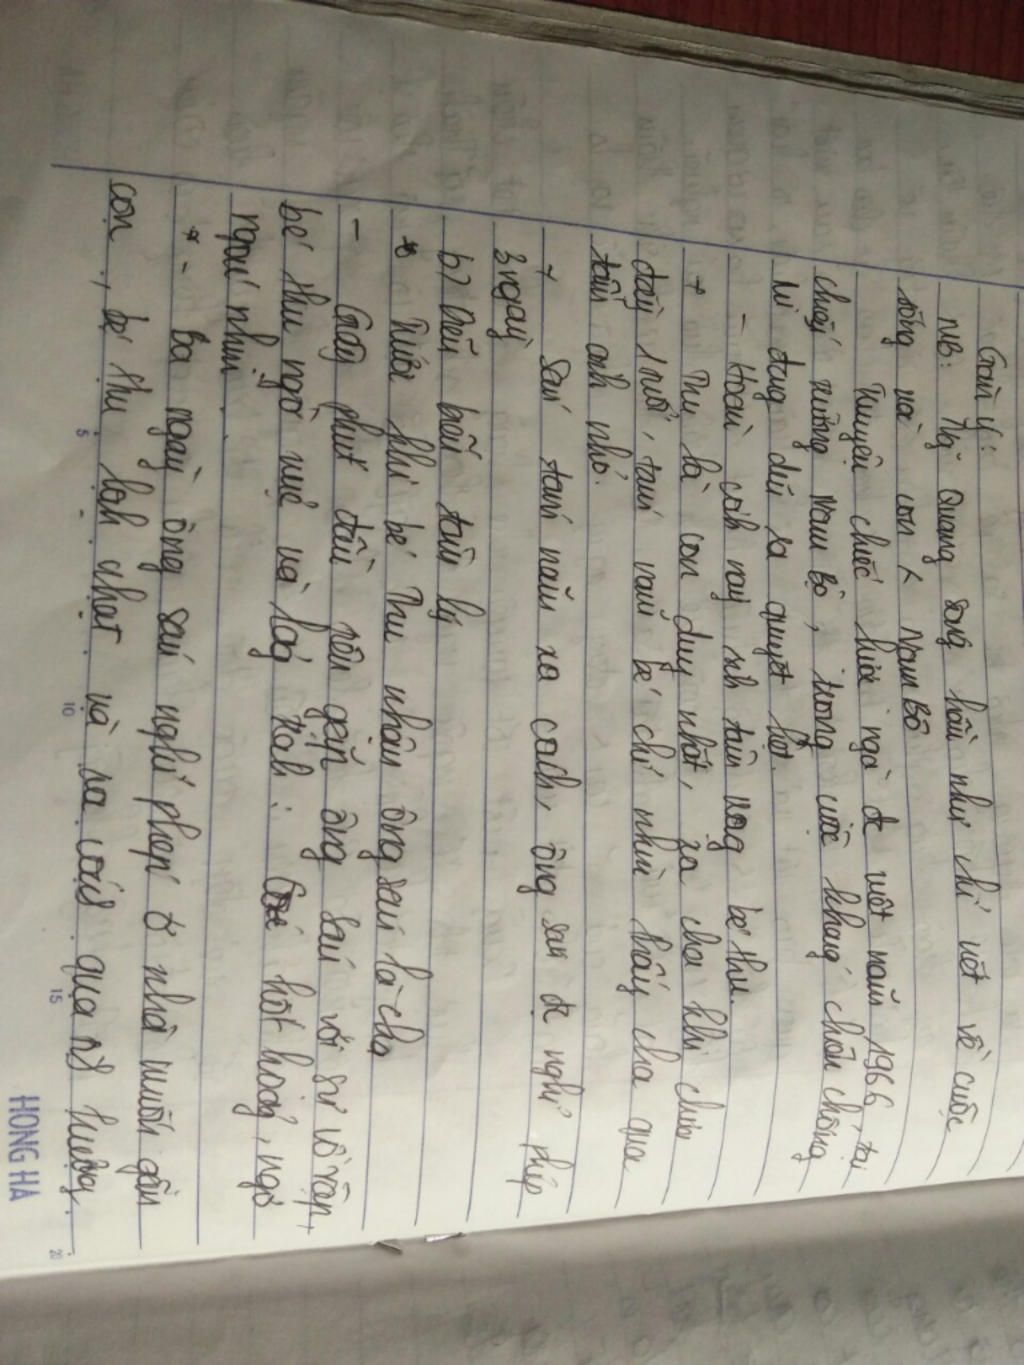 Gợi ý:
NB: Ng Quang Sáng hầu như chỉ viết về cuộc
sống và con ng Nam Bộ
Truyện chiếc lược ngà đc viết năm 1966, tại
chiến trường Nam Bộ, trong cuộc kháng chiến chống
Mĩ đang diễn ra quyết liệt.
- Hoàn cảnh nảy sinh tâm trạng bé Thu.
+ Thu là con duy nhất, xa cha khi chưa
đầy 1 tuổi, tám năm bé chỉ nhìn thấy cha qua
tấm ảnh nhỏ.
+ Sau tám năm xa cách, ông Sáu đc nghỉ phép
3 ngày
b) Diễn biến tâm lý
* Trước khi bé Thu nhận ông Sáu là cha
- Giây phút đầu tiên gặp ông Sáu với sự vồ vập,
bé Thu ngờ vực và lảng tránh: hốt hoảng, ngơ
ngác nhìn.
* - Ba ngày ông Sáu nghỉ phép ở nhà muốn gần
con, bé Thu lạnh nhạt và xa cách qua n~ h tượng
5
10
15
20
HONG HA